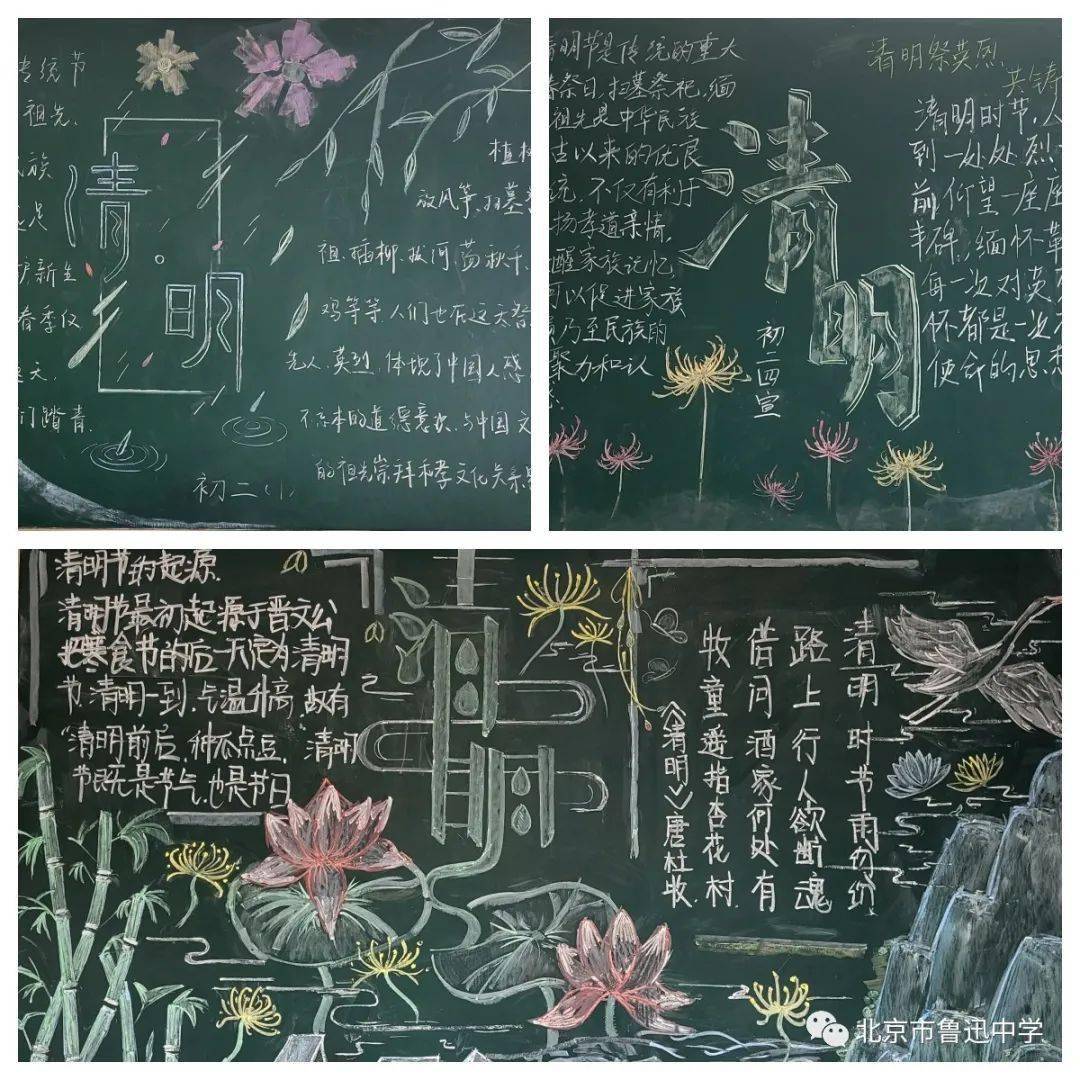 专统节
祖先、
民族
新生
春季仪
们踏青.
清明
植树
放风筝、扫墓
祖、插柳、拔河、荡秋千、
鸡等等.人们也在这天
先人、英烈.体现了中国人感
不忘本的道德意识.与中国文
的祖先崇拜和孝文化关系
初二(1)
清明节是传统的重大
春祭日,扫墓祭祀、缅
祖先是中华民族
古以来的优良
统.不仅有利于
扬孝道亲情,
醒家族记忆,
可以促进家族
乃至民族的
聚力和认
清明
初二四宣
清明祭英烈
共铸
清明时节,人
到一处处烈
前仰望一座座
丰碑,缅怀革
每一次对英烈
怀都是一次
使命的思想
清明节的起源.
清明节最初起源于晋文公
把寒食节的后一天定为清明
节.清明一到.气温升高.故有
"清明前后,种瓜点豆.清明
节既是节气.也是节日
清明
清明时节雨纷纷
路上行人欲断魂
借问酒家何处有
牧童遥指杏花村.
《清明》唐杜牧
北京市鲁迅中学